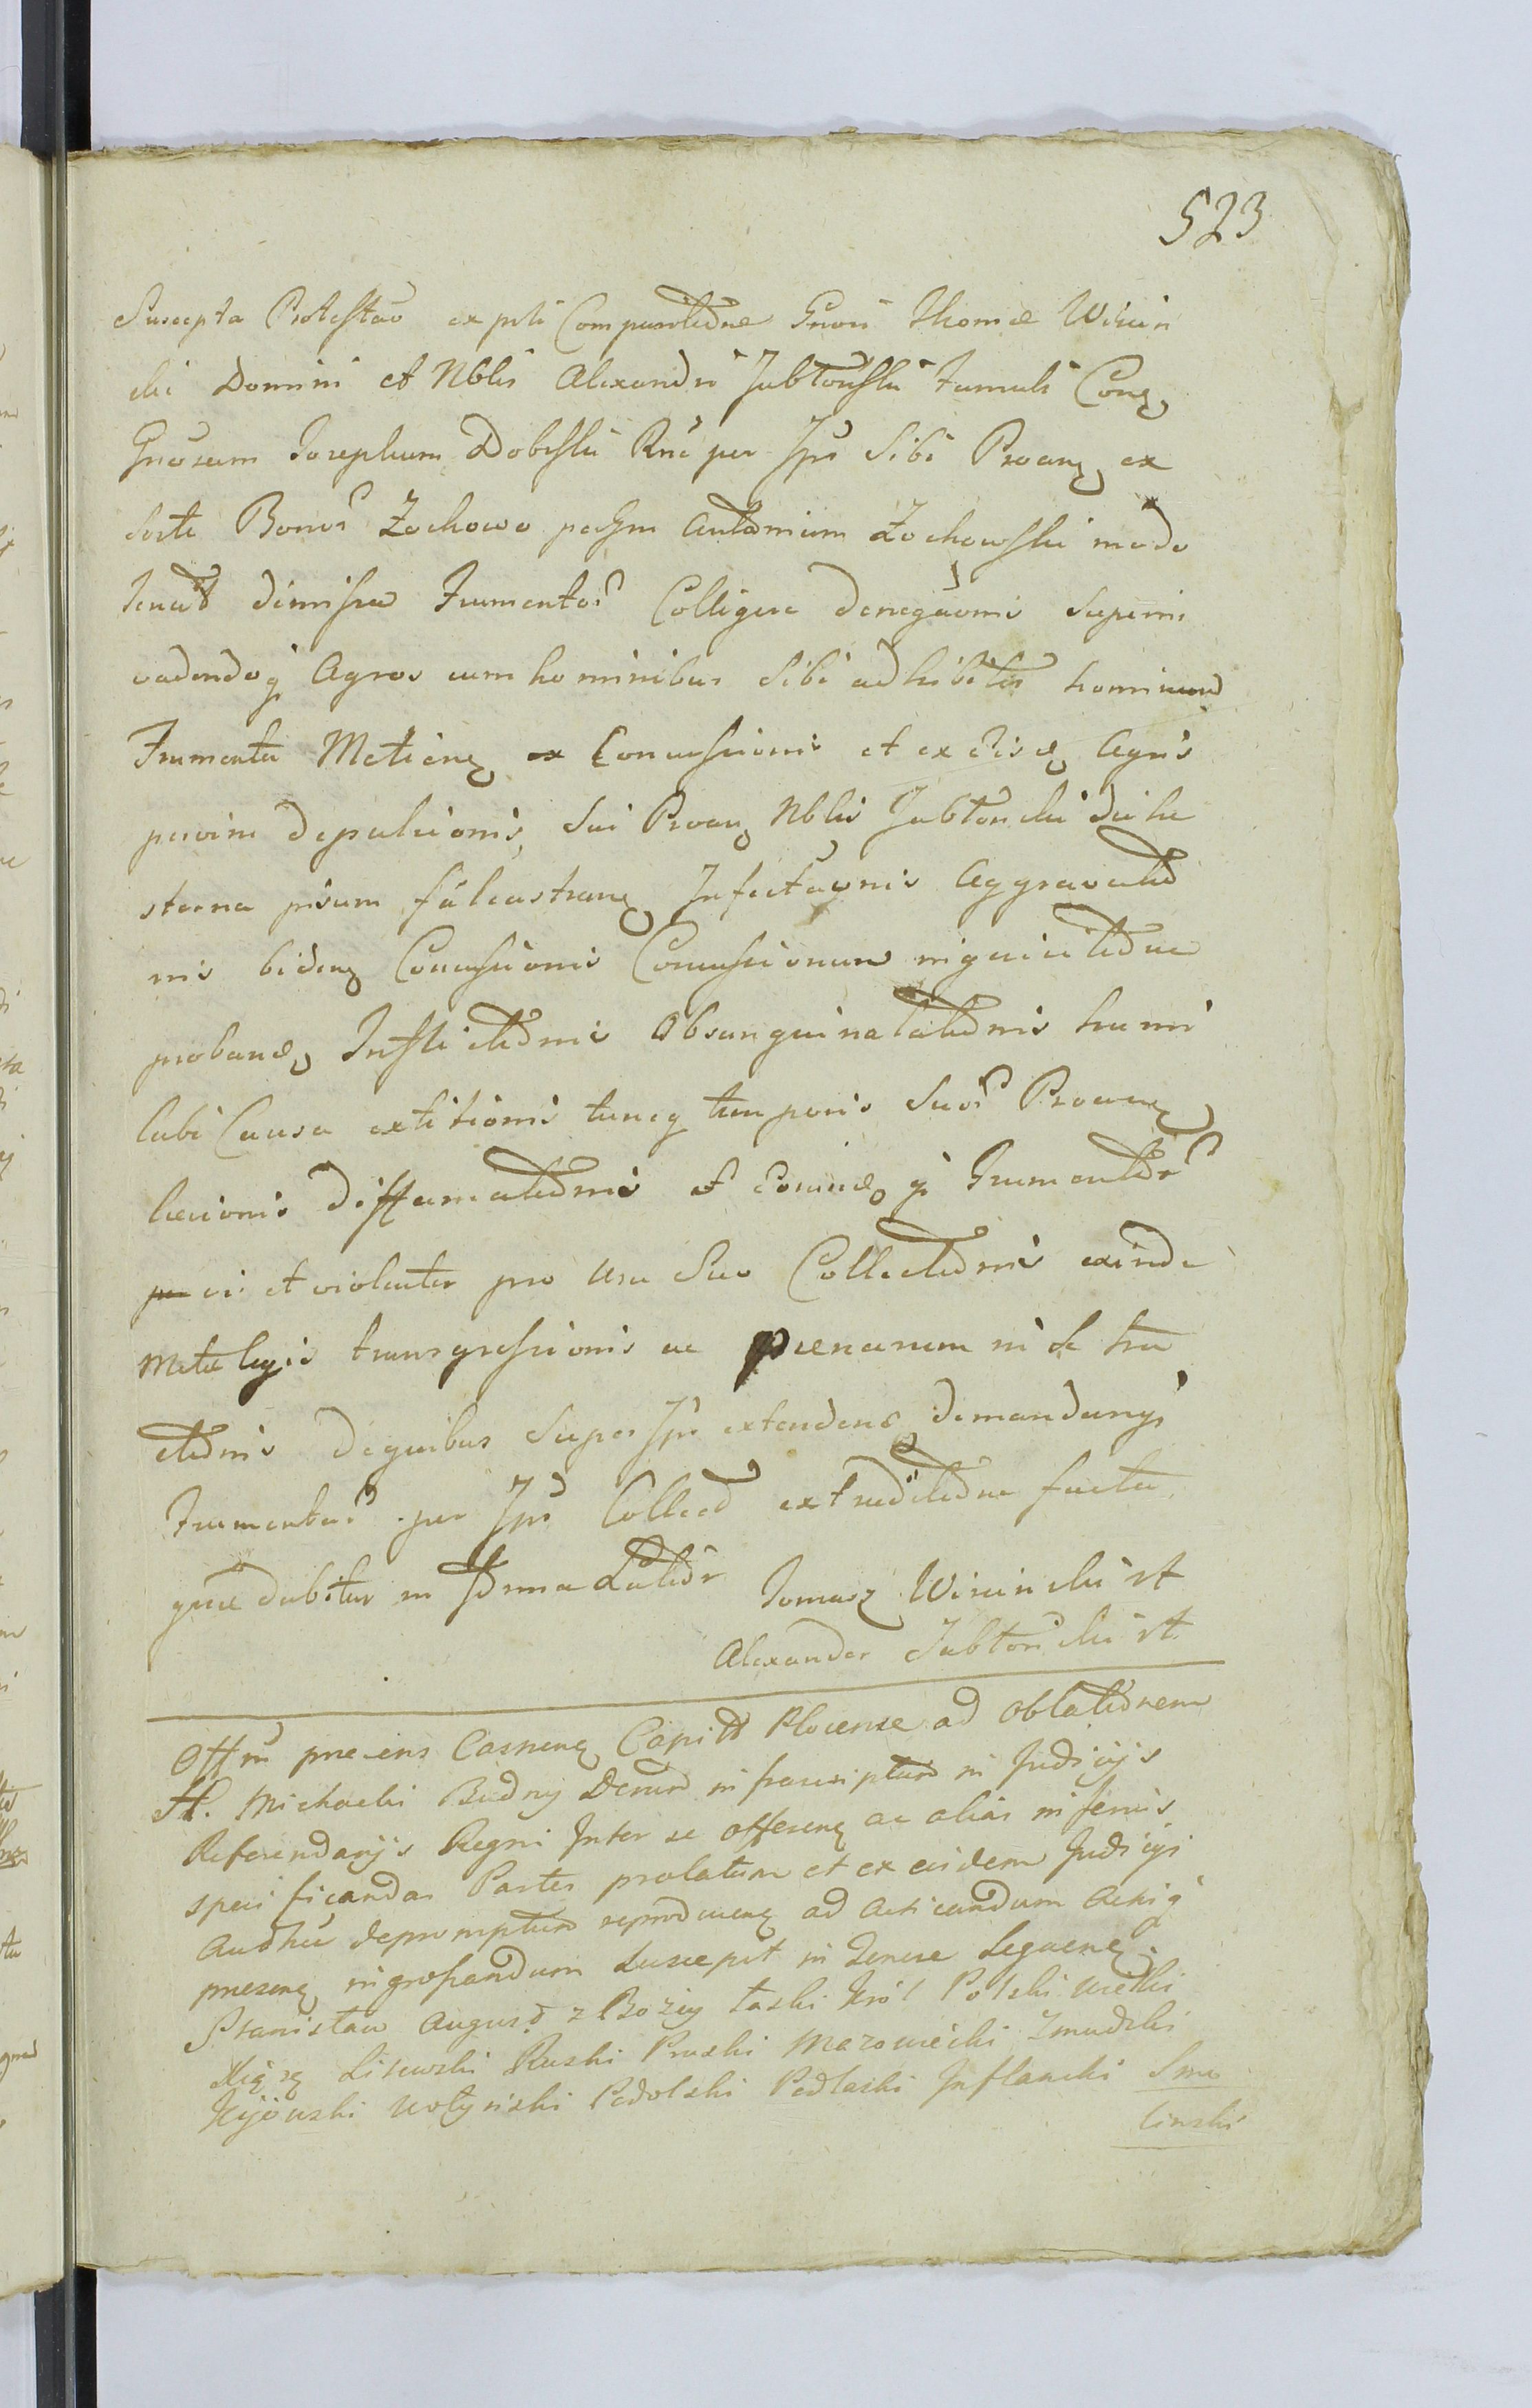 523
Suscepta Protestaō ex pti Comparitione Gnosi Thomæ Wisin
ski Domini et Nblis Alexandri Jabłonski Famuli Conq
Gnosum Josephum Dobrski Rnē per Ips Sibi Proanq ex
Sorte Bonor Żochowo p Gsm Antonium Żochowski modo
tenut dimissa Frumentor Colligere denegaōnis superin
vadendoq Agros cum hominibus Sibi adhibitis hominum
Frumenta Metienq ex Concussionis et ex eisdq Agris
per vim depulsionis, Sui Proanq Nblis Jabłonski
sterna pisum falcastranq Infectaōnis Aggravatio
nis bidenq Concussionis Concussionum
probandq Inflictionis Obsanguinalationis humi
Cubi Causa extitionis tuncq temporis Suor Proanq
Diffamationis et q Frumentor
vi et violenter pro usu Suo Collectionis exinde
Metæ legis transgressionis ac pænarum in se tra
ctionis de quibus super Ips extendendq demandanq
Frumentor per Ips Collect extraditione facta
quæ dabitur in Forma Latior Tomasz Wisinski
Alexander Jabłonski
Offm præsens Casnenq Capitt Plocense ad oblationem
H. Michaelis Budny Decret infrascriptum in Judicijs
Referendarijs Regni Inter se offerenq ac alias inferius
specificandas Partes prolatum et ex eisdem Judicijs
Authcē depromptum reproducenq ad Acticandum Actisq
præsenq ingrossandum Suscepit in Tenore Sequenq.
Stanisław August z Bozey łaski Król Polski Wielki
Xiążę Litewski Ruski Pruski Mazowiecki Zmudzki
Kijowski Wołyński Podolski Podlaski Inflancki Smo
leński